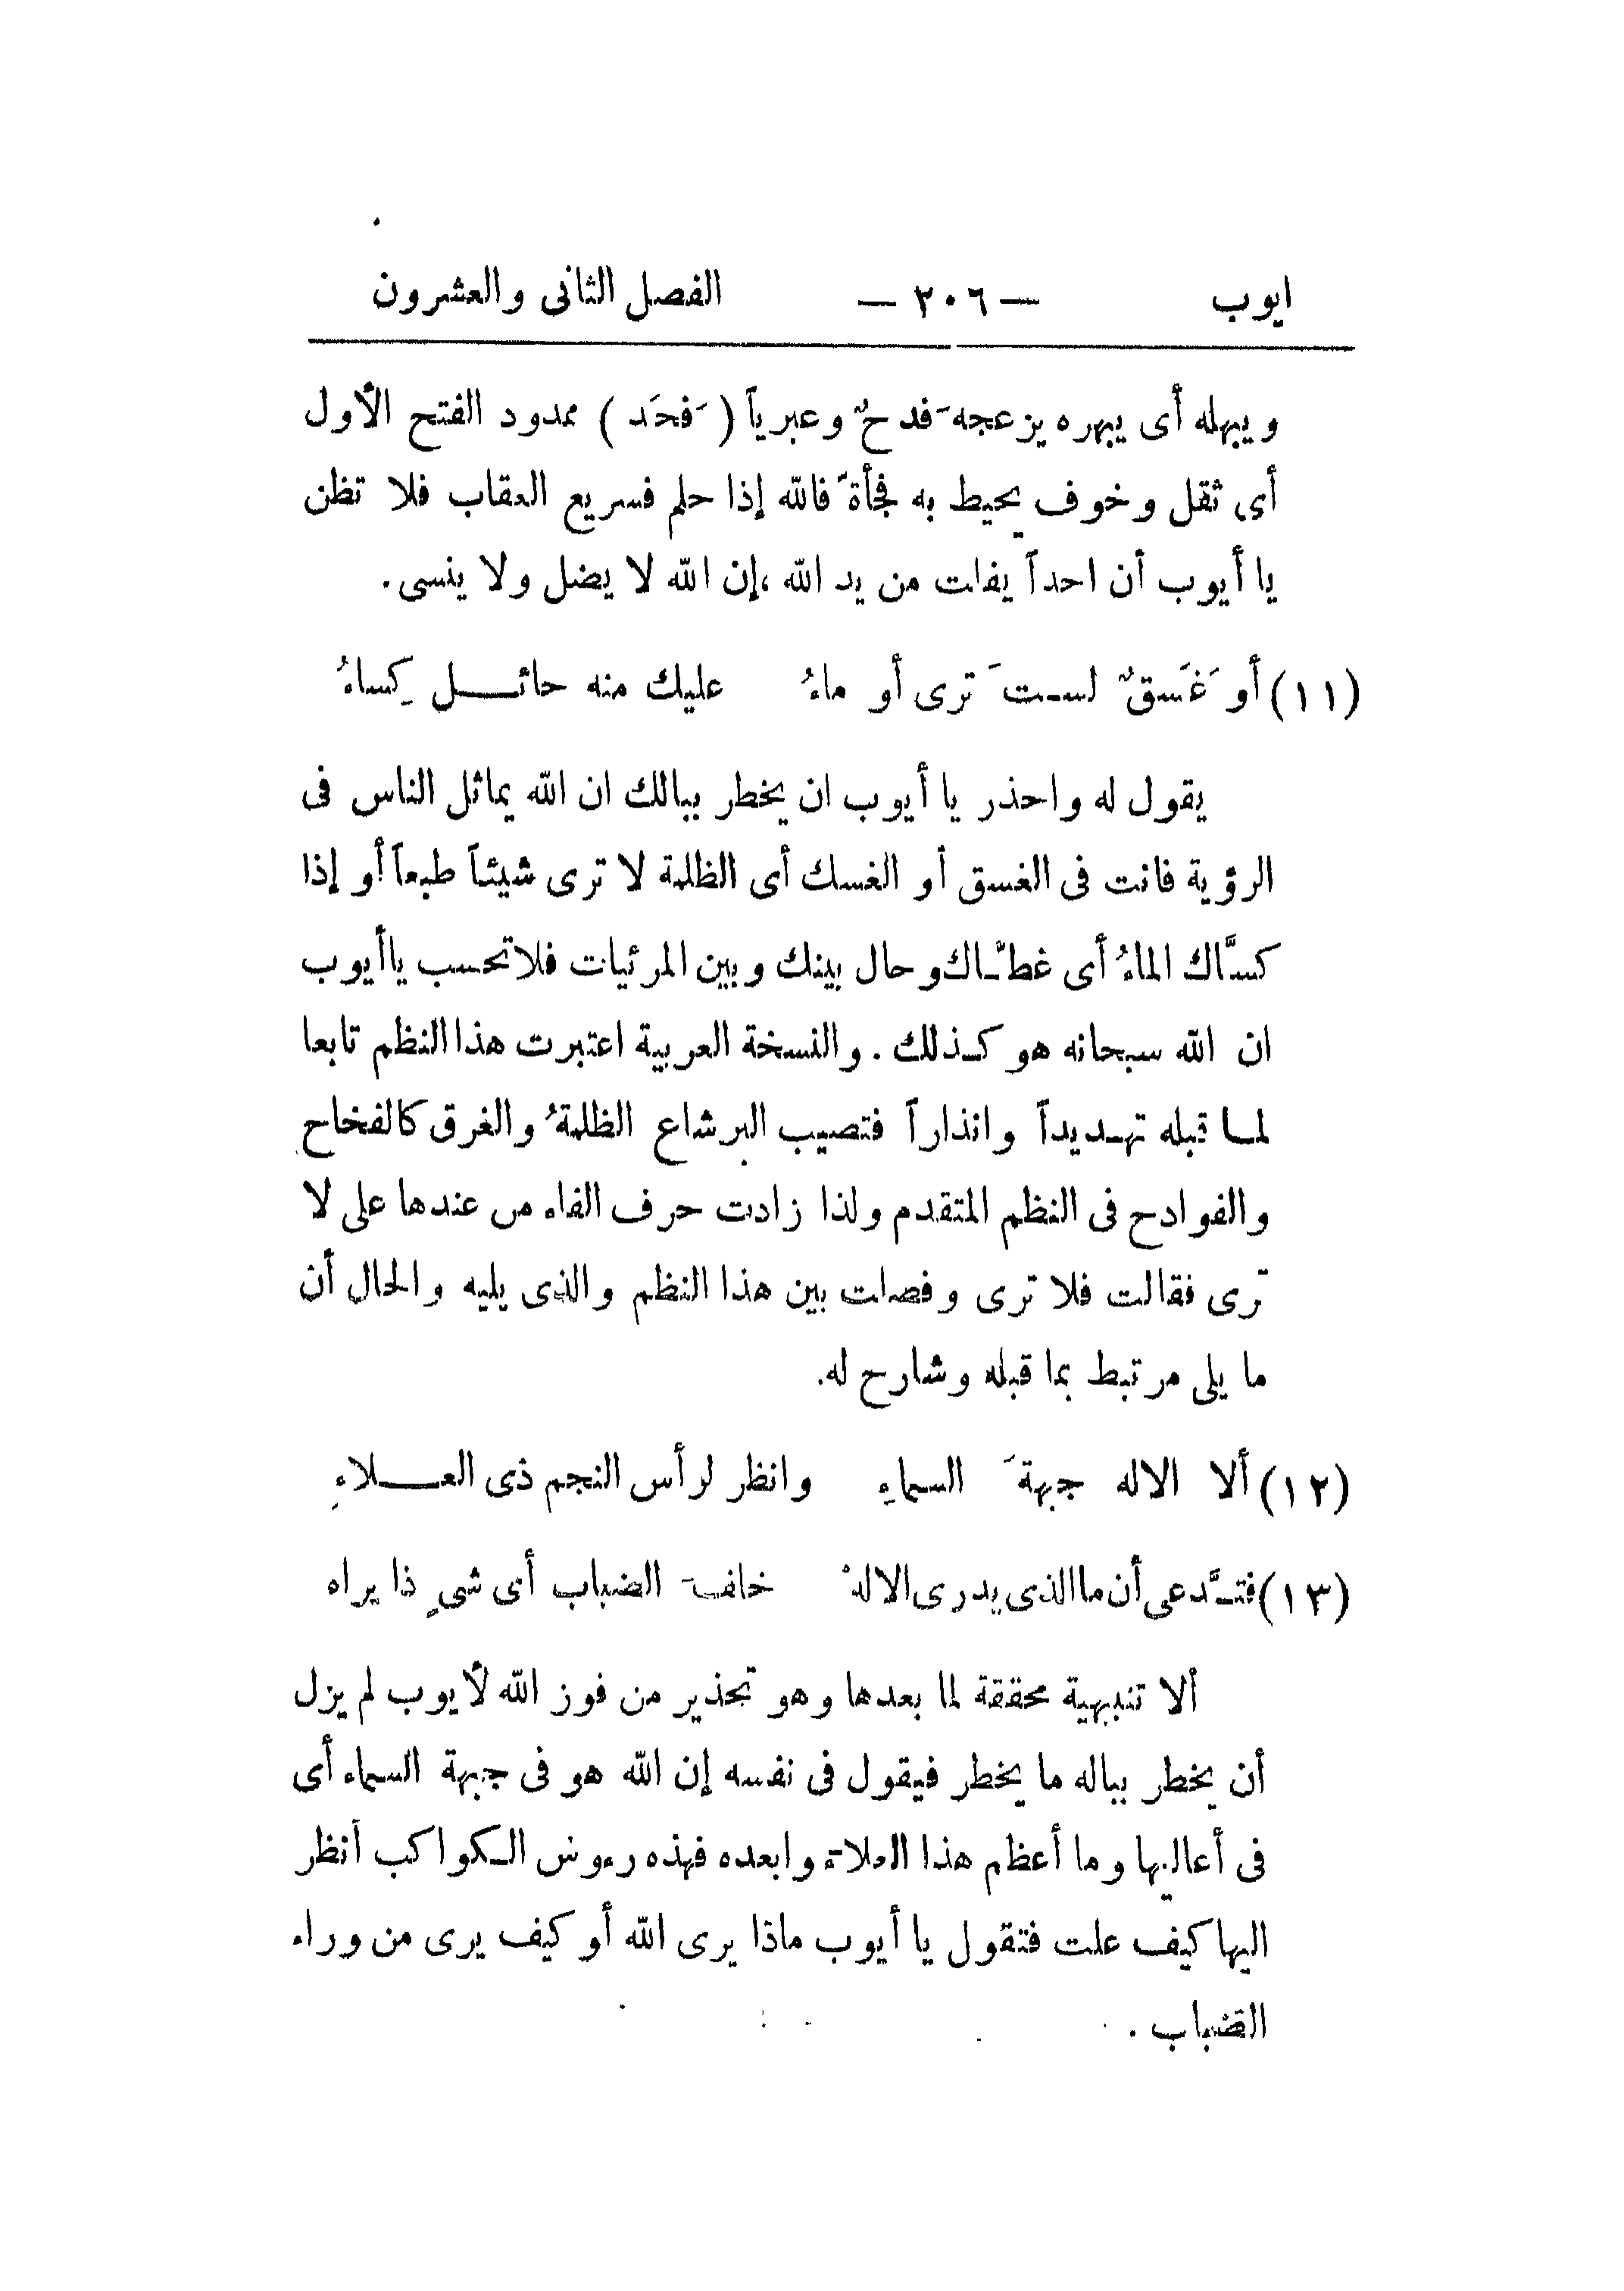 ايوب — ٢٠٦ — الفصل الثانى والعشرون
ويبهله أى يبهره يزعجه فَدحٌ وعبرياً ( فَحَد ) ممدود الفتح الأول
أى ثقل وخوف يحيط به فجأةً فالله إذا حلم فسريع العقاب فلا تظن
يا أيوب أن احداً يفلت من يد الله ،إن الله لا يضل ولا ينسى.
(١١) أو غَسَقٌ لستَ ترى أو ماءُ عليك منه حائل كِساءُ
يقول له واحذر يا أيوب ان يخطر ببالك ان الله يماثل الناس فى
الرؤية فانت فى الغسق أو الغسك أى الظلمة لا ترى شيئاً طبعاً أو إذا
كسَّاك الماءُ أى غطّاك وحال بينك وبين المرئيات فلا تحسب يا أيوب
ان الله سبحانه هو كذلك . والنسخة العربية اعتبرت هذا النظم تابعا
لما قبله تهديداً وانذاراً فتصيب البرشاع الظلمةُ والغرق كالفخاح
والفوادح فى النظم المتقدم ولذا زادت حرف الفاء من عندها على لا
ترى فقالت فلا ترى وفصلت بين هذا النظم والذى يليه والحال أن
ما يلى مرتبط بما قبله وشارح له.
(١٢) ألا الاله جبهةَ السماءِ وانظر لرأس النجم ذى العلاءِ
(١٣) فتدَّعى أن ما الذى يدرى الالهُ خلفَ الضباب أى شىءٍ ذا يراه
ألا تنبيهية محققة لما بعدها وهو تحذير من فوز الله لأيوب لم يزل
أن يخطر بباله ما يخطر فيقول فى نفسه إن الله هو فى جبهة السماء أى
فى أعاليها وما أعظم هذا العلاء وابعده فهذه رءوس الكواكب أنظر
اليها كيف علت فتقول يا أيوب ماذا يرى الله أو كيف يرى من وراء
الضباب .